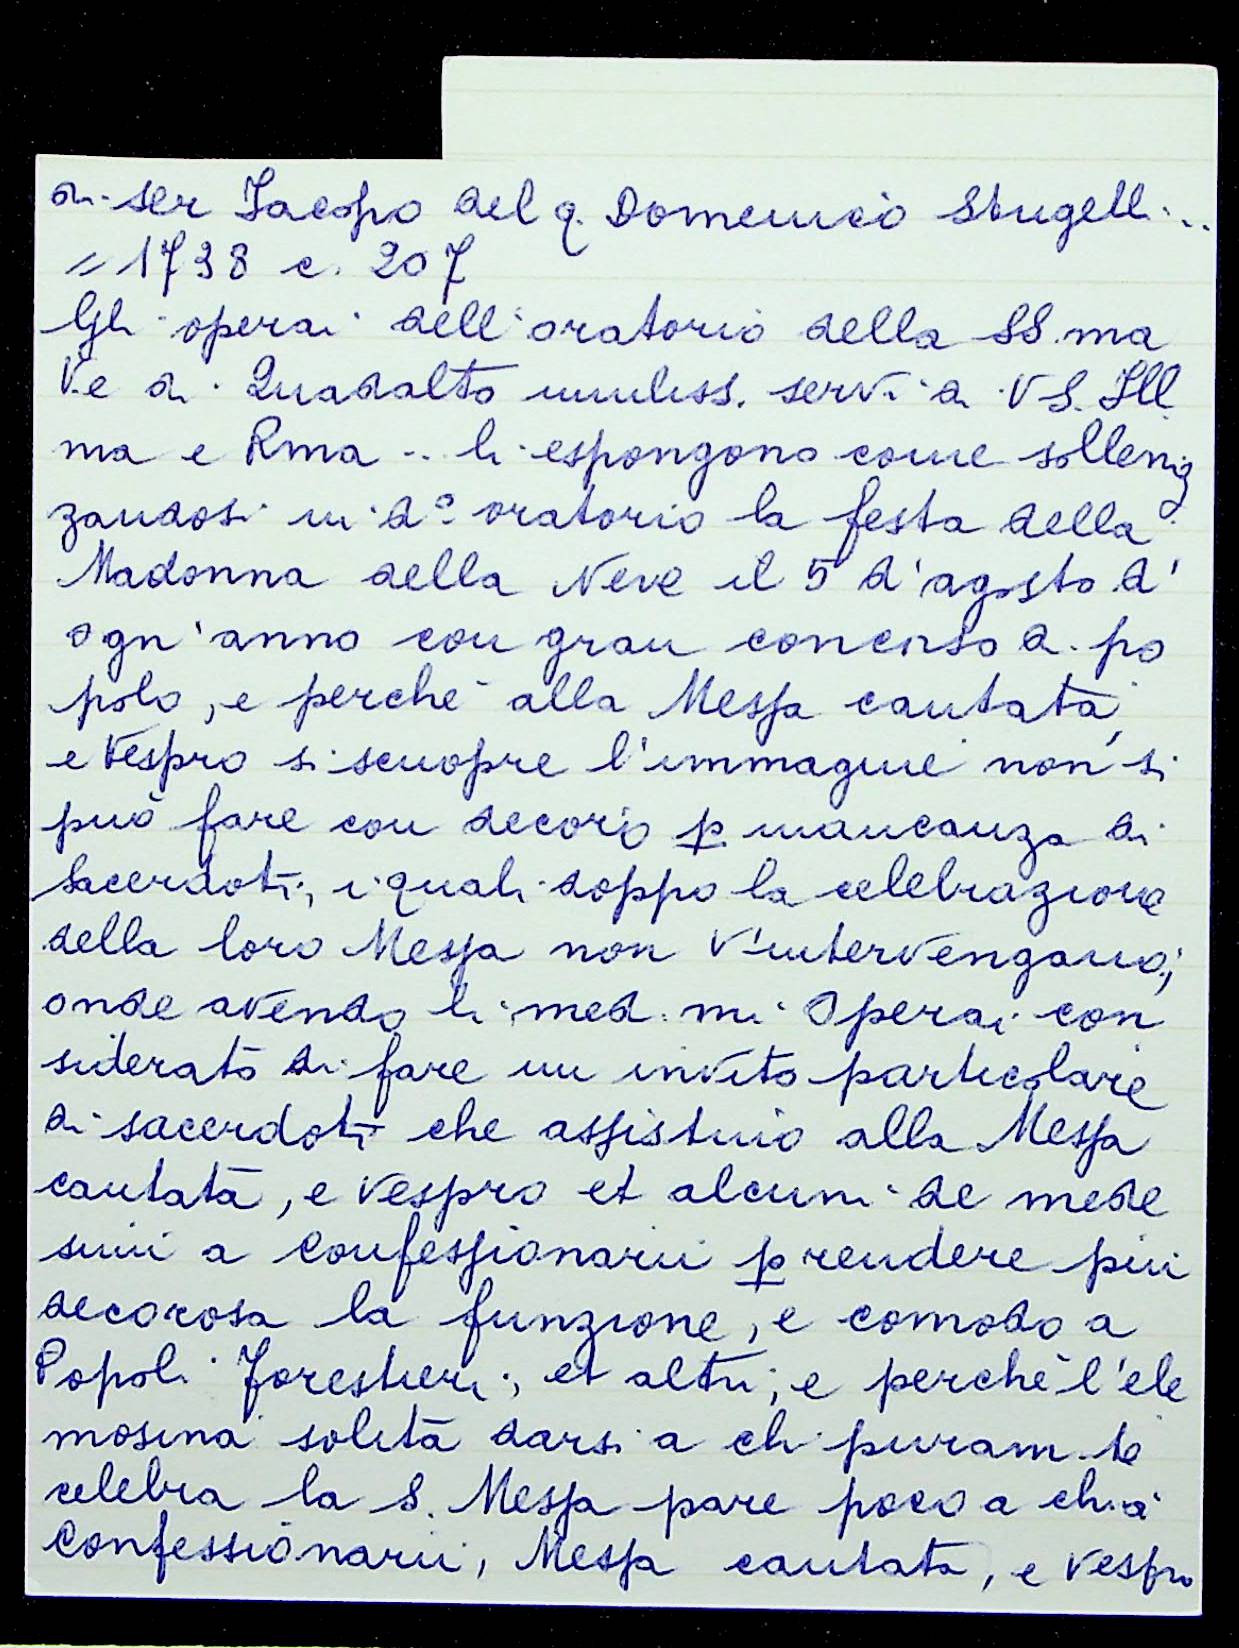 di ser Jacopo del q. Domenico Stugelli..
= 1738 c. 207
Gli operai dell'oratorio della SS.ma
V.e di Quadalto umiliss. servi di VS. Ill
ma e Rma .. li espongono come solleniz
zandosi in d.° oratorio la festa della
Madonna della Neve il 5 d'agosto d'
ogn'anno con gran concorso di po
polo, e perche alla Messa cantata,
e Vespro si scuopre l'immagine non si
può fare con decoro p. mancanza di
sacerdoti, i quali doppo la celebrazione
della loro Messa non v'intervengano;
onde avendo li med.mi Operai con
siderato di fare un invito particolare
di sacerdoti che assistino alla Messa
cantata, e Vespro et alcuni de mede
simi a Confessionarii p rendere più
decorosa la funzione, e comodo a
Popoli Forestieri, et altri, e perchè l'ele
mosina solita darsi a chi puram.te
celebra la S. Messa pare poco a chi a
Confessionarii, Messa cantata, e Vespro